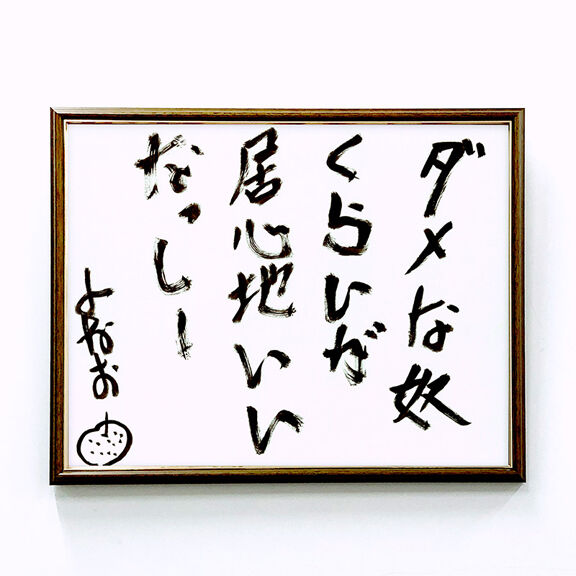 ダメな奴
くらいが
居心地いい
なっしー
よなお